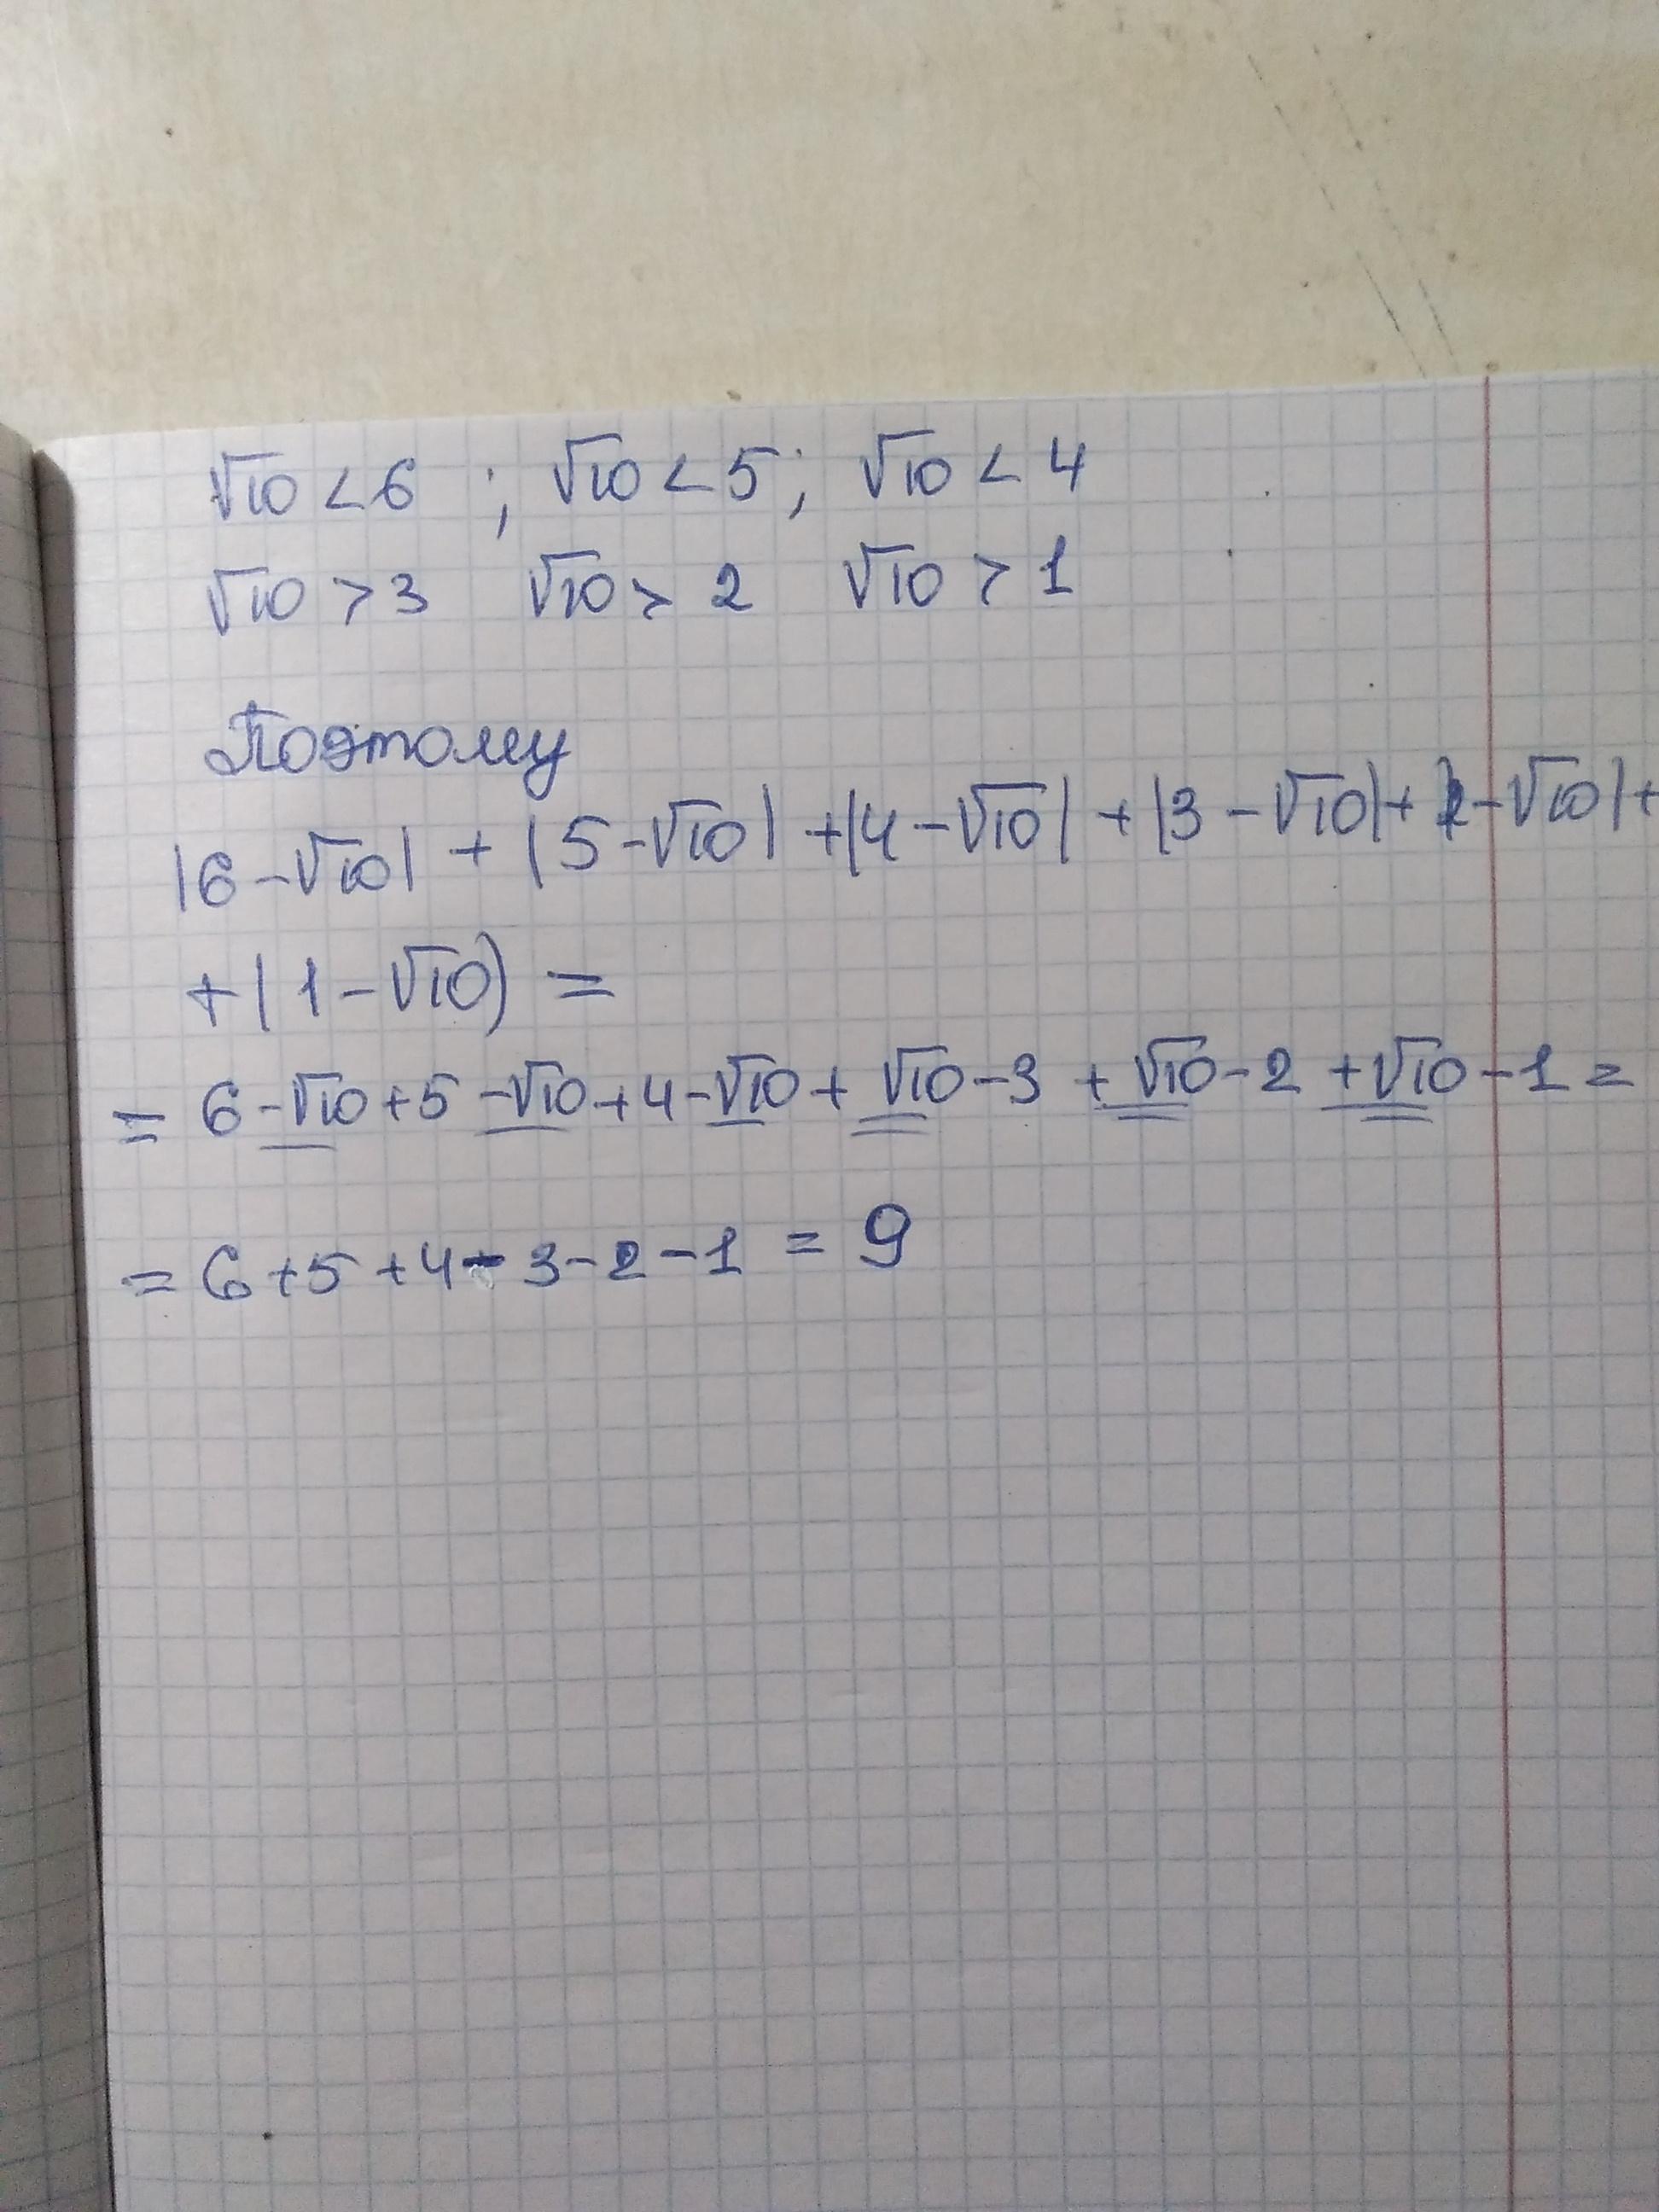 √10 < 6 ; √10 < 5; √10 < 4
√10 > 3 √10 > 2 √10 > 1
Поэтому
|6 - √10| + |5 - √10| + |4 - √10| + |3 - √10| + |2 - √10| +
+ |1 - √10) =
= 6 - √10 + 5 - √10 + 4 - √10 + √10 - 3 + √10 - 2 + √10 - 1 =
= 6 + 5 + 4 - 3 - 2 - 1 = 9